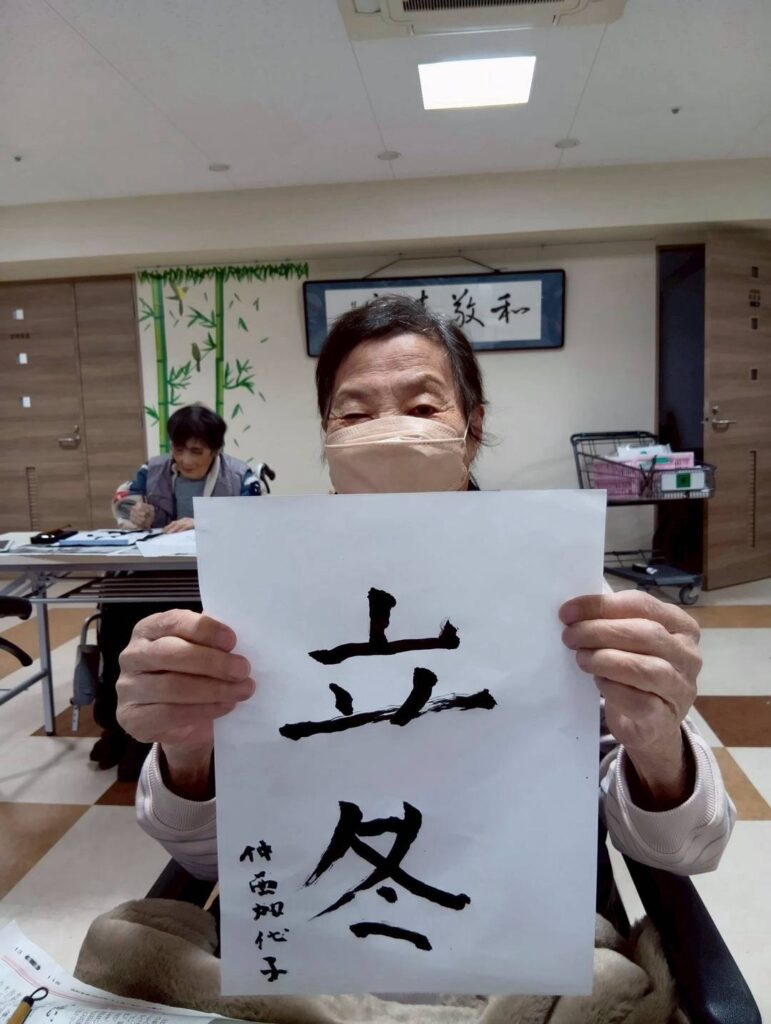 和敬
立冬
仲西加代子